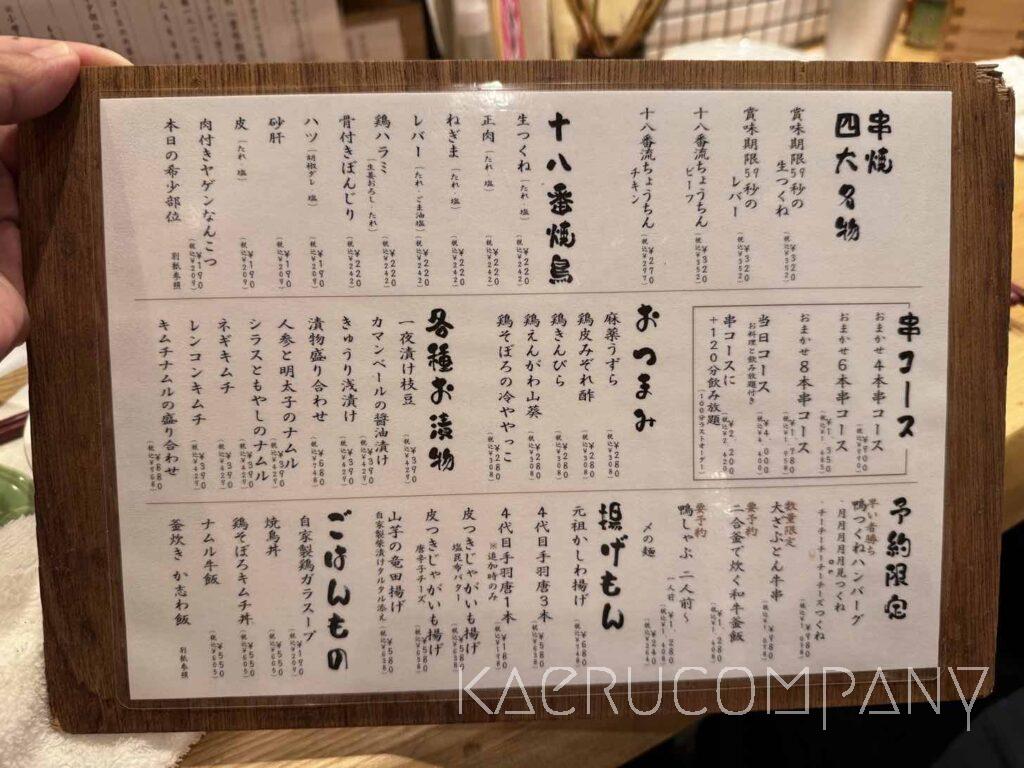 串焼
四大名物
賞味期限59秒の
生つくね
¥320
(税込¥352)
賞味期限59秒の
レバー
¥320
(税込¥352)
十八番流ちょうちん
ビーフ
¥320
(税込¥352)
十八番流ちょうちん
チキン
¥270
(税込¥297)
十八番焼鳥
生つくね(たれ・塩)
¥220
(税込¥242)
正肉(たれ・塩)
¥220
(税込¥242)
ねぎま(たれ・塩)
¥220
(税込¥242)
レバー(たれ・ごま油塩)
¥220
(税込¥242)
鶏ハラミ
(生姜おろし・たれ)
¥220
(税込¥242)
骨付きぼんじり
¥220
(税込¥242)
ハツ(胡椒ダレ・塩)
¥190
(税込¥209)
砂肝
¥190
(税込¥209)
皮(たれ・塩)
¥190
(税込¥209)
肉付きヤゲンなんこつ
¥190
(税込¥209)
本日の希少部位
別紙参照
串コース
おまかせ4本串コース
¥900
おまかせ6本串コース
¥1,350
おまかせ8本串コース
¥1,780
当日コース
お料理と飲み放題付き
¥4,000
(税込¥4,400)
串コースに
+120分飲み放題
(100分ラストオーダー)
¥2,200
おつまみ
麻薬うずら
¥280
(税込¥308)
鶏皮みぞれ酢
¥280
(税込¥308)
鶏きんぴら
¥280
(税込¥308)
鶏えんがわ山葵
¥280
(税込¥308)
鶏そぼろの冷ややっこ
¥280
(税込¥308)
各種お漬物
一夜漬け枝豆
¥390
(税込¥429)
カマンベールの醤油漬け
¥390
(税込¥429)
きゅうり浅漬け
¥390
(税込¥429)
漬物盛り合わせ
¥680
(税込¥748)
人参と明太子のナムル
¥390
(税込¥429)
シラスともやしのナムル
¥390
(税込¥429)
ネギキムチ
¥390
(税込¥429)
レンコンキムチ
¥390
(税込¥429)
キムチナムルの盛り合わせ
¥680
予約限定
早い者勝ち
鴨つくねハンバーグ
月月月月月見つくね
or
チーチーチーチーチーズつくね
¥980
数量限定
大ざぶとん牛串
要予約
二合釜で炊く和牛釜飯
要予約
鴨しゃぶ 二人前〜
(一人前)
¥1,280
(税込¥1,408)
〆の麺
¥240
揚げもん
元祖かしわ揚げ
¥580
(税込¥638)
4代目手羽唐3本
¥540
4代目手羽唐1本
※追加時のみ
¥180
(税込¥198)
皮つきじゃがいも揚げ
塩昆布バター
¥580
皮つきじゃがいも揚げ
唐辛子チーズ
¥580
山芋の竜田揚げ
自家製柴漬けタルタル添え
¥580
(税込¥638)
ごはんもの
自家製鶏ガラスープ
¥190
焼鳥丼
¥550
(税込¥605)
鶏そぼろキムチ丼
¥550
(税込¥605)
ナムル牛飯
¥550
(税込¥605)
釜炊き か志わ飯
別紙参照
KAERUCOMPANY